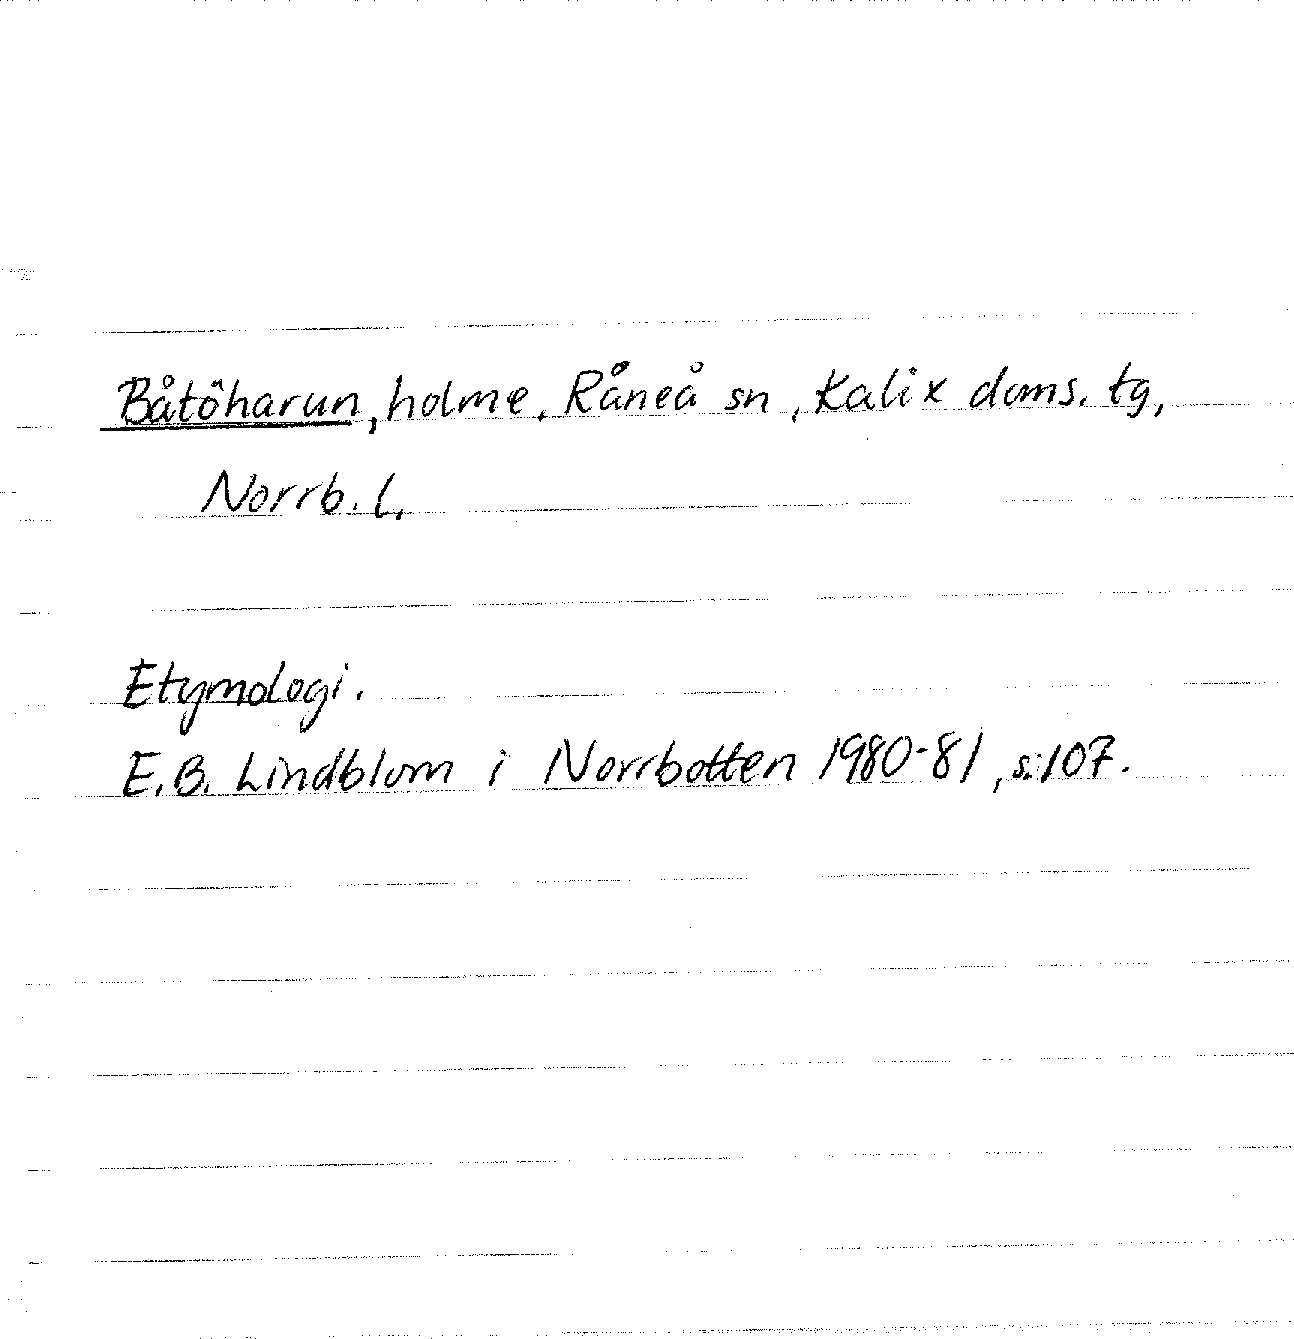 Båtöharun, holme, Råneå sn, Kalix doms. tg,
Norrb. l.
Etymologi.
E.B. Lindblom i Norrbotten 1980-81, s. 107.